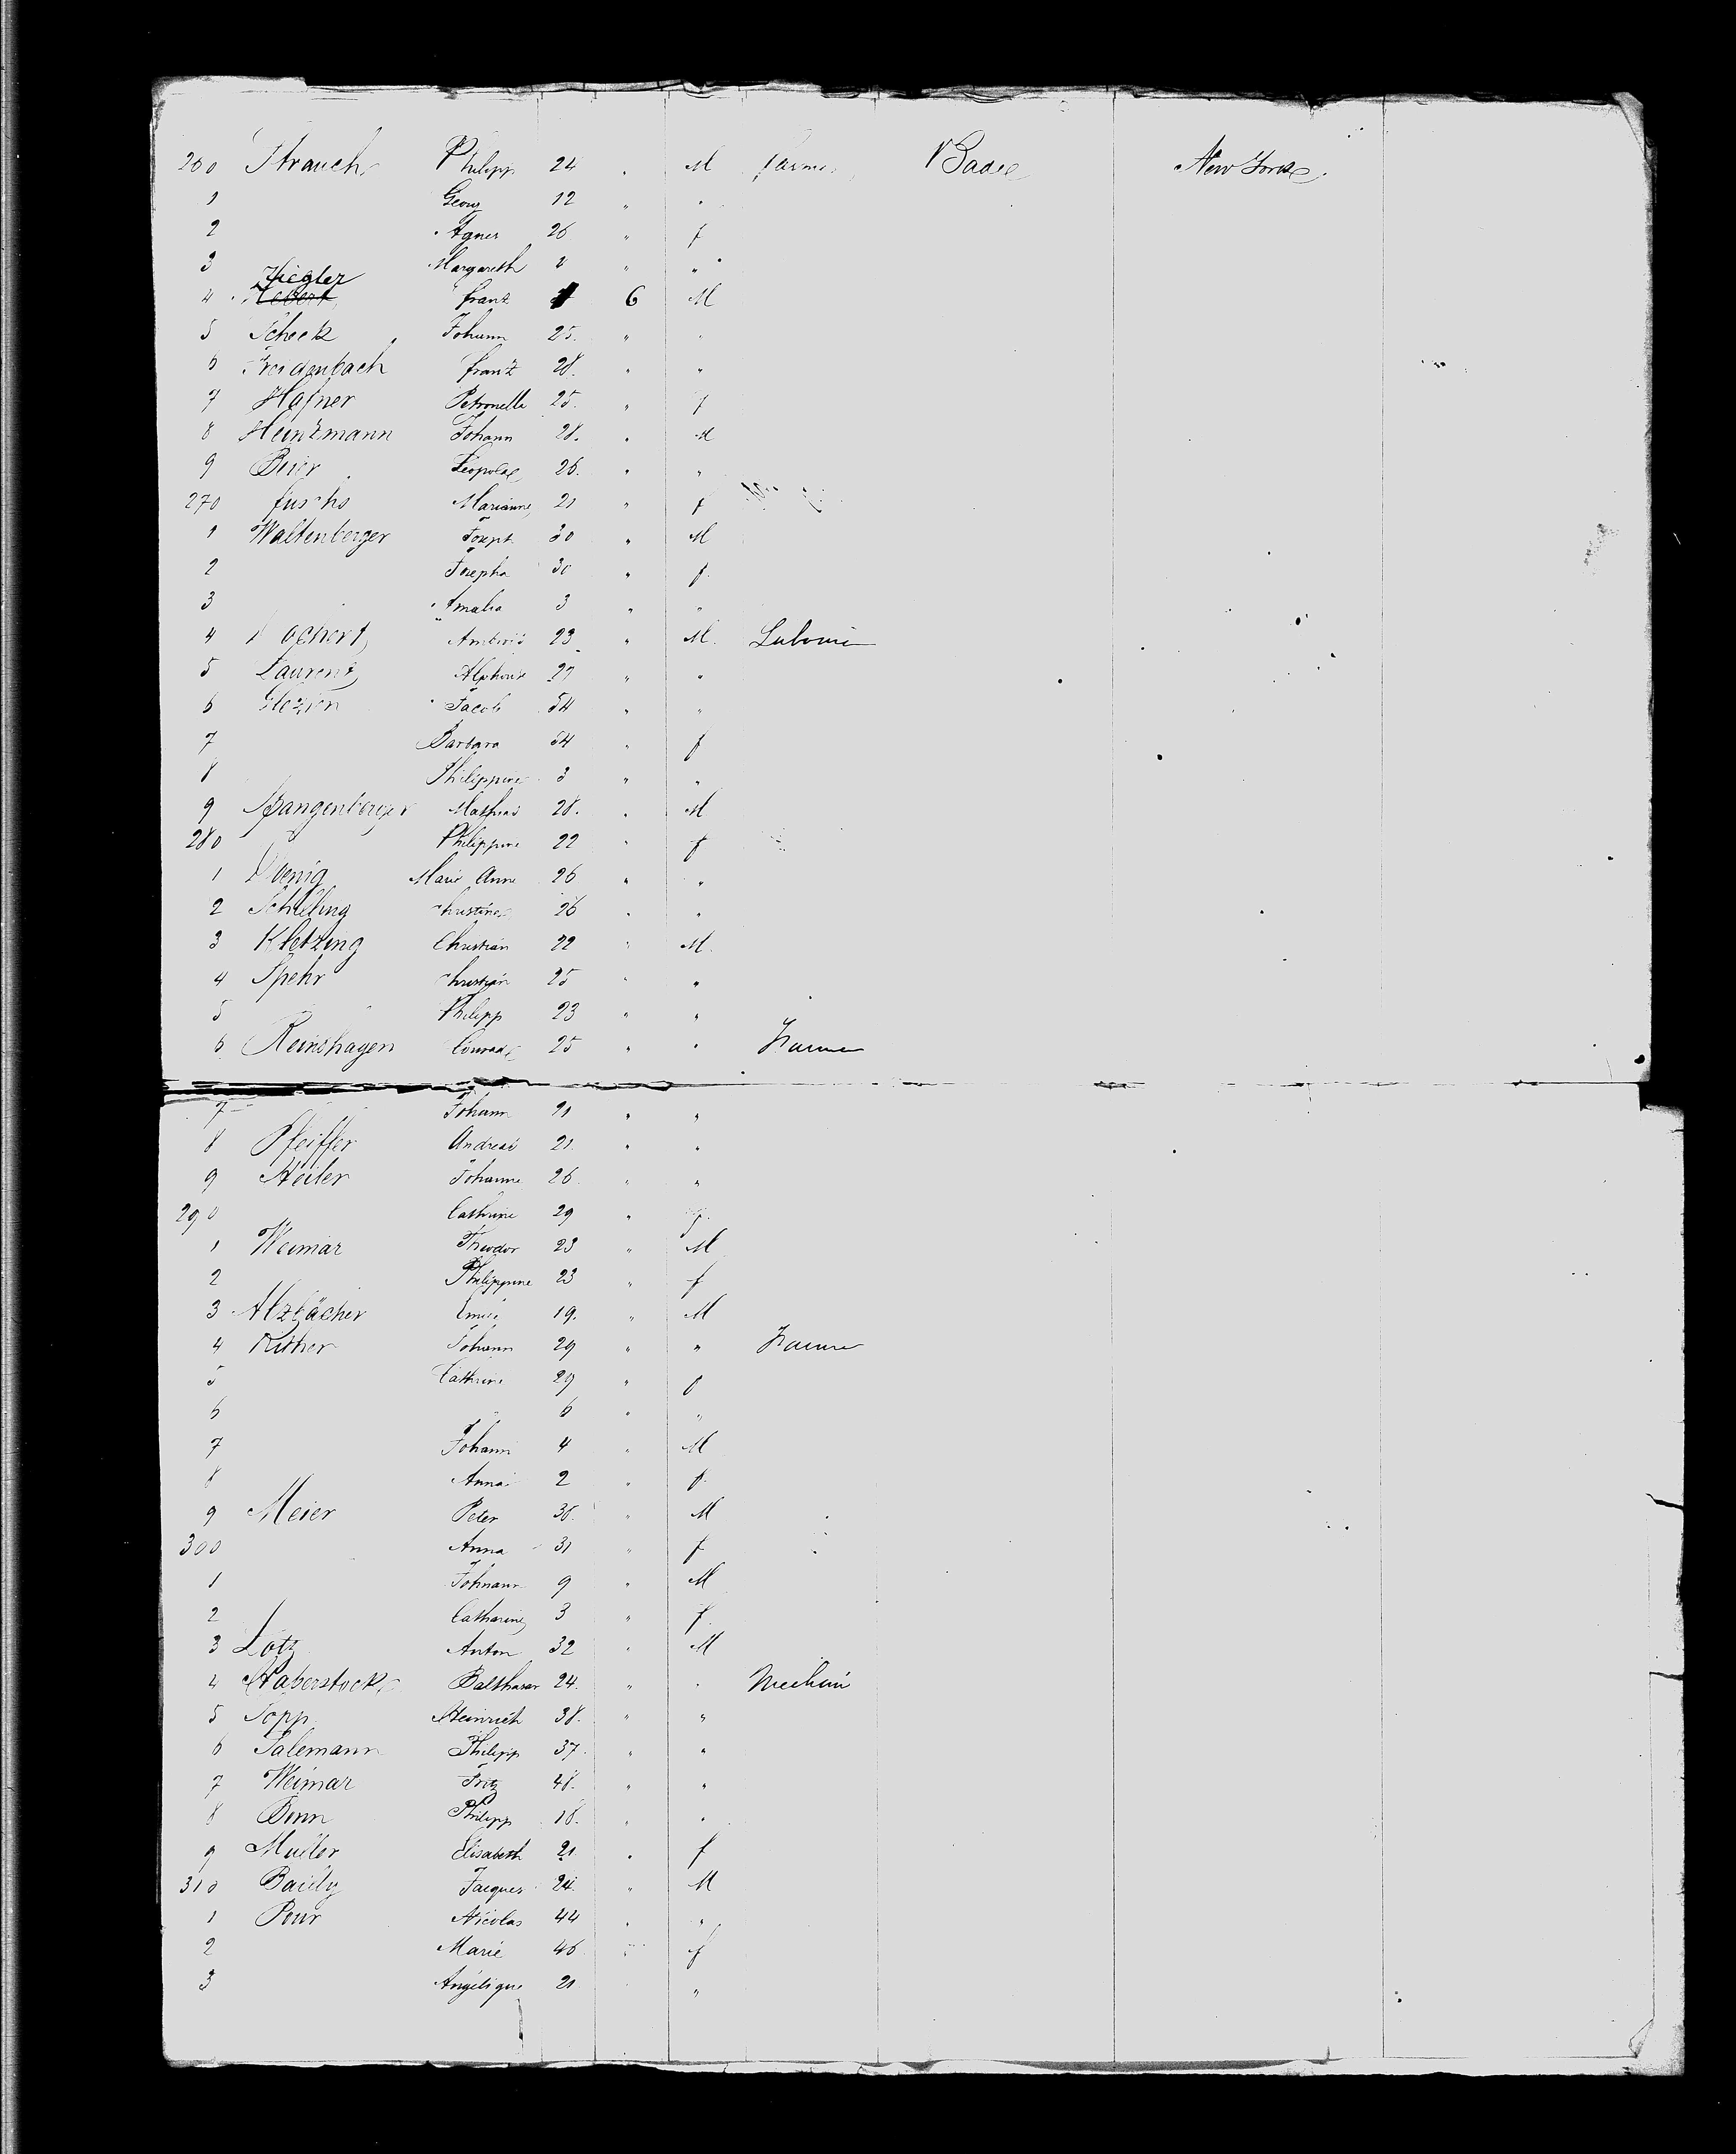 260 Strauch Philipp 24 " M Farmer Bade New York
1 Georg 12 " "
2 Agnes 26 " f
3 Margareth " "
4 Ziegler Franz 6 M
5 Scheck Johann 25 " "
6 Franz 28 " "
7 Hafner Petronella 25 " f
8 Heintzmann Johann 28 " M
9 Beier Leopold 26 " "
270 Fuschs Marianne 21 " f
1 Waltenberger Joseph 30 " M
2 Josepha 30 " f
3 Amalia 3 " "
4 23 " M
5 Laurent Alphonse 27 " "
6 Jacob 54 " "
7 Barbara 54 " f
8 Philippine 3 " "
9 Spangenberger Mathias 28 " M
280 Philippine 22 " f
1 Marie Anne 26 " "
2 Schilling Christine 26 " "
3 Kletzing Christian 22 " M
4 Spehr Christian 25 " "
5 Philipp 23 " "
6 Reinshagen Conrad 25 " " Farmer
7 Johann 21 " "
8 Pfeiffer Andreas 21 " "
9 Heiler Johann 26 " "
290 Cathrine 29 " f
1 Weimar Theodor 23 " M
2 Philippine 23 " f
3 Alzbächer 19 " M
4 Johann 29 " " Farmer
5 Cathrine 29 " f
6 " 6 " "
7 Johann 4 " M
8 Anna 2 " f
9 Meier Peter 38 " M
300 Anna 31 " f
1 Johann 9 " M
2 Catharine 3 " f
3 Lotz Anton 32 " M
4 Haberstock Balthasar 24 " "
5 Sopp Heinrich 38 " "
6 Salemann Philipp 37 " "
7 Weimar Fritz 48 " "
8 Bonn Philipp 18 " "
9 Muller Elisabeth 21 " f
310 Bailly Jacques 24 " M
1 Pour Nicolas 44 " "
2 Marie 46 " f
3 Angélique 21 "